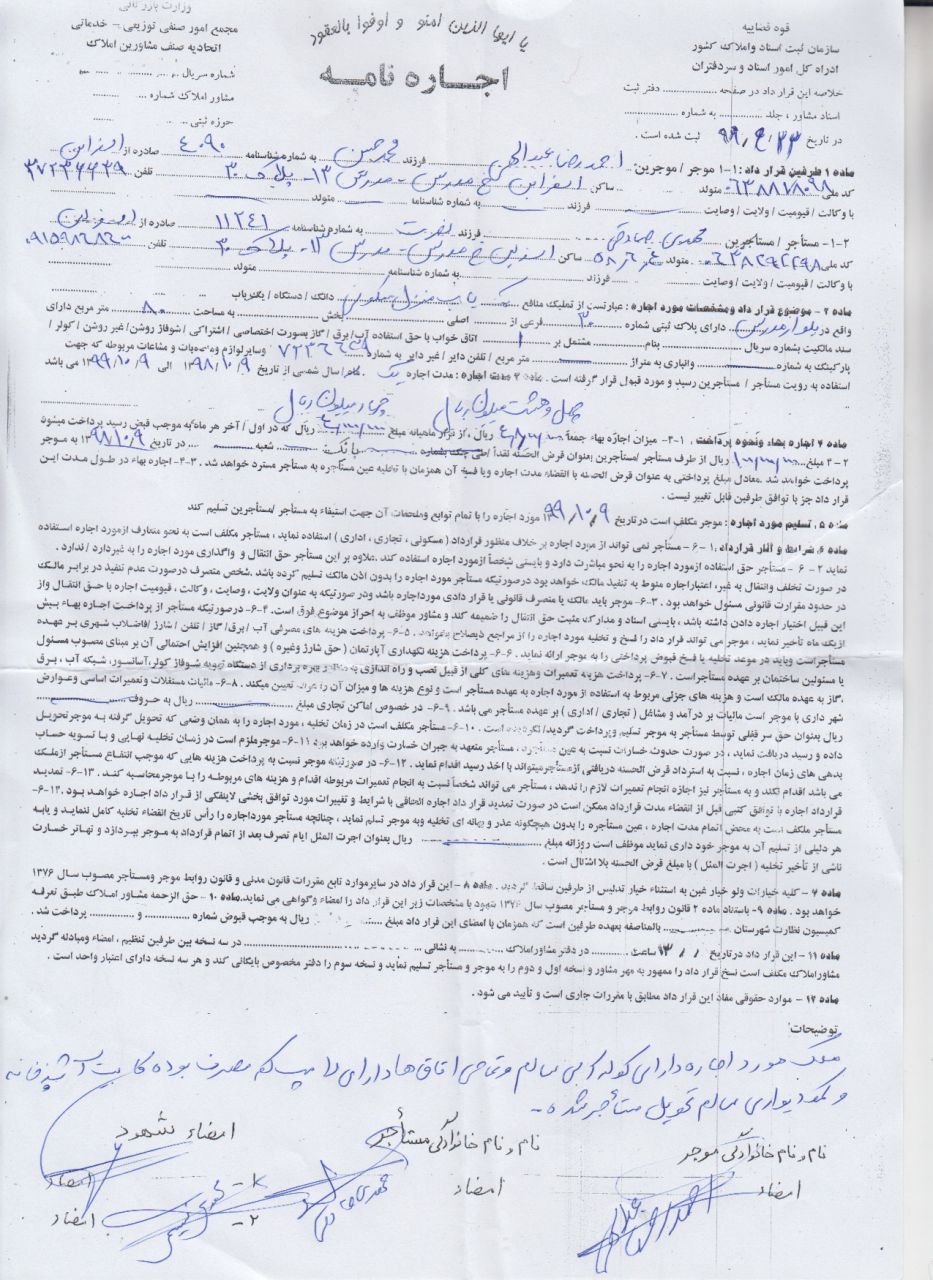 وزارت بازرگانی
قوه قضاییه
سازمان ثبت اسناد واملاک کشور
اداره کل امور اسناد و سردفتران
خلاصه این قرار داد در صفحه .......... دفتر ثبت
اسناد مشاور ، جلد .......... به شماره ..........
در تاریخ ۹۹/۶/۲۳ ثبت شده است .
یا ایها الذین امنو و اوفوا بالعقود
اجـــاره نامـــه
مجمع امور صنفی توزیعی - خدماتی
اتحادیه صنف مشاورین املاک
شماره سریال ..........
مشاور املاک شماره ..........
حوزه ثبتی ..........
ماده ۱ طرفین قرار داد : ۱-۱ موجر / موجرین : احمد رضا عبدالحی فرزند محمد حسن به شماره شناسنامه ۴۰۹۰ صادره از اسفراین
کد ملی ۰۶۳۸۸۷۸۰۹۸ متولد .......... ساکن اسفراین خ مدرس - مدرس ۱۳ - پلاک ۳۰ تلفن ۳۷۲۳۶۶۳۹
با وکالت / قیومیت / ولایت / وصایت .......... فرزند .......... به شماره شناسنامه .......... متولد ..........
۱-۲- مستأجر / مستأجرین مهدی صادقی فرزند نصرت به شماره شناسنامه ۱۱۲۴۱ صادره از اسفراین
کد ملی ۰۶۳۸۲۹۲۲۹۸ متولد ۵۸/۶/۴ ساکن اسفراین خ مدرس - مدرس ۱۳ - پلاک ۳۰ تلفن
با وکالت / قیومیت / ولایت / وصایت .......... فرزند .......... به شماره شناسنامه .......... متولد ..........
ماده ۲ - موضوع قرار داد ومشخصات مورد اجاره : عبارتست از تملیک منافع یک باب منزل مسکونی دانگ / دستگاه / یکبرباب
واقع در بلوار مدرس دارای پلاک ثبتی شماره ۳۰ فرعی از .......... اصلی .......... بخش .......... به مساحت ۸۰ متر مربع دارای
سند مالکیت بشماره سریال .......... بنام .......... مشتمل بر ۱ اتاق خواب با حق استفاده آب/برق / گاز بصورت اختصاصی / اشتراکی / شوفاژ روشن/غیر روشن / کولر /
پارکینگ به شماره .......... وانباری به متراژ .......... متر مربع / تلفن دایر / غیر دایر به شماره ۷۲۳۶۶۳۹ وسایر لوازم ومنصوبات و مشاعات مربوطه که جهت
استفاده به رویت مستأجر / مستأجرین رسید و مورد قبول قرار گرفته است . ماده ۳ مدت اجاره : مدت اجاره یک ماه/ سال شمسی از تاریخ ۱۳۹۸/۱۰/۹ الی ۱۳۹۹/۱۰/۹ می باشد
چهل و هشت میلیون ریال چهار میلیون ریال
ماده ۴ اجاره بهاء ونحوه پرداخت . ۱-۴- میزان اجاره بهاء جمعاً ۴۸/۰۰۰/۰۰۰ ریال ، از قرار ماهیانه مبلغ ۴/۰۰۰/۰۰۰ ریال که در اول / آخر هر ماه به موجب قبض رسید پرداخت میشود
۲-۴ مبلغ ۱۰/۰۰۰/۰۰۰ ریال از طرف مستأجر /مستأجرین بعنوان قرض الحسنه نقداً /طی چک بشماره .......... بانک .......... شعبه .......... در تاریخ ۹۸/۱۰/۹ به موجر
پرداخت خواهد شد . معادل مبلغ پرداختی به عنوان قرض الحسنه با انقضاء مدت اجاره ویا فسخ آن همزمان با تخلیه عین مستأجره به مستأجر مسترد خواهد شد . ۳-۴- اجاره بهاء در طول مدت این
قرار داد جز با توافق طرفین قابل تغییر نیست .
ماده ۵ ـ تسلیم مورد اجاره : موجر مکلف است در تاریخ ۹۹/۱۰/۹ مورد اجاره را با تمام توابع وملحقات آن جهت استیفاء به مستأجر /مستأجرین تسلیم کند
ماده ۶. شرایط و آثار قرارداد . ۱-۶- مستأجر نمی تواند از مورد اجاره بر خلاف منظور قرارداد ( مسکونی ، تجاری ، اداری ) استفاده نماید ، مستأجر مکلف است به نحو متعارف ازمورد اجاره استفاده
نماید ۲-۶- مستأجر حق استفاده ازمورد اجاره را به نحو مباشرت دارد و بایستی شخصاً ازمورد اجاره استفاده کند .علاوه بر این مستأجر حق انتقال و واگذاری مورد اجاره را به غیردارد / ندارد .
در صورت تخلف وانتقال به غیر، اعتباراجاره منوط به تنفیذ مالک خواهد بود درصورتیکه مستأجر مورد اجاره را بدون اذن مالک تسلیم کرده باشد .شخص متصرف درصورت عدم تنفیذ در برابر مالک
در حدود مقررات قانونی مسئول خواهد بود . ۳-۶- موجر باید مالک یا متصرف قانونی یا قرار دادی مورداجاره باشد ودر صورتیکه به عنوان ولایت ، وصایت ، وکالت ، قیومیت اجاره با حق انتقال واز
این قبیل اختیار اجاره دادن داشته باشد ، بایستی اسناد و مدارک مثبت حق انتقال را ضمیمه کند و مشاور موظف به احراز موضوع فوق است . ۴-۶- درصورتیکه مستأجر از پرداخت اجاره بهاء بیش
ازیک ماه تأخیر نماید ، موجر می تواند قرار داد را فسخ و تخلیه مورد اجاره را از مراجع ذیصلاح بخواهد . ۵-۶- پرداخت هزینه های مصرفی آب /برق/ گاز / تلفن / شارژ /فاضلاب شهری بر عهده
مستأجراست وباید در موعد تخلیه یا فسخ قبوض پرداختی را به موجر ارائه نماید . ۶-۶- پرداخت هزینه نگهداری آپارتمان ( حق شارژ وغیره ) و همچنین افزایش احتمالی آن بر مبنای مصوب مسئول
یا مسئولین ساختمان بر عهده مستأجراست . ۷-۶- پرداخت هزینه تعمیرات وهزینه های کلی از قبیل نصب و راه اندازی به منظور بهره برداری از دستگاه تهویه شوفاژ کولر،آسانسور، شبکه آب ، برق
،گاز به عهده مالک است و هزینه های جزئی مربوط به استفاده از مورد اجاره به عهده مستأجر است و نوع هزینه ها و میزان آن را عرف تعیین میکند . ۸-۶- مالیات مستغلات وتعمیرات اساسی وعوارض
شهر داری با موجر است مالیات بر درآمد و مشاغل ( تجاری / اداری ) بر عهده مستأجر می باشد . ۹-۶- در خصوص اماکن تجاری مبلغ .......... ریال به حروف ..........
ریال بعنوان حق سر قفلی توسط مستأجر به موجر تسلیم وپرداخت گردید/ نگردیده است . ۱۰-۶- مستأجر مکلف است در زمان تخلیه ، مورد اجاره را به همان وضعی که تحویل گرفته به موجرتحویل
داده و رسید دریافت نماید ، در صورت حدوث خسارات نسبت به عین مستأجره ، مستأجر متعهد به جبران خسارت وارده خواهد بود ۱۱-۶- موجرملزم است در زمان تخلیه نهایی و با تسویه حساب
بدهی های زمان اجاره ، نسبت به استرداد قرض الحسنه دریافتی ازمستأجر میتواند با اخذ رسید اقدام نماید . ۱۲-۶- در صورتیکه موجر نسبت به پرداخت هزینه هایی که موجب انتفاع مستأجر ازملک
می باشد اقدام نکند و به مستأجر نیز اجازه انجام تعمیرات لازم را ندهد ، مستأجر می تواند شخصاً نسبت به انجام تعمیرات مربوطه اقدام و هزینه های مربوطه را با موجرمحاسبه کند . ۱۳-۶- تمدید
قرارداد اجاره با توافق کتبی قبل از انقضاء مدت قرارداد ممکن است در صورت تمدید قرار داد اجاره الحاقی با شرایط و تغییرات مورد توافق بخشی لاینفکی از قرار داد اجاره خواهد بود .۱۴-۶-
مستأجر مکلف است به محض اتمام مدت اجاره ، عین مستأجره را بدون هیچگونه عذر و بهانه ای تخلیه وبه موجر تسلم نماید ، چنانچه مستأجر مورداجاره را رأس تاریخ انقضاء تخلیه کامل ننماید و یابه
هر دلیلی از تسلیم آن به موجر خود داری نماید موظف است روزانه مبلغ .......... ریال بعنوان اجرت المثل ایام تصرف بعد از اتمام قرارداد به موجر بپردازد و تهاتر خسارت
ناشی از تأخیر تخلیه ( اجرت المثل ) با مبلغ قرض الحسنه بلا اشکال است .
ماده ۷ - کلیه خیارات ولو خیار غبن به استثناء خیار تدلیس از طرفین ساقط گردید . ماده ۸ - این قرار داد در سایرموارد تابع مقررات قانون مدنی و قانون روابط موجر ومستأجر مصوب سال ۱۳۷۶
خواهد بود . ماده ۹- باستناد ماده ۲ قانون روابط موجر و مستأجر مصوب سال ۱۳۷۶ شهود با مشخصات زیر این قرار داد را امضاء وگواهی می نماید.ماده ۱۰ - حق الزحمه مشاور املاک طبق تعرفه
کمیسیون نظارت شهرستان .......... بالمناصفه بعهده طرفین است که همزمان با امضای این قرار داد مبلغ .......... ریال به موجب قبوض شماره .......... و .......... پرداخت شد .
ماده ۱۱ - این قرار داد در تاریخ / / ۱۳ ساعت .......... در دفتر مشاوراملاک .......... به نشانی .......... در سه نسخه بین طرفین تنظیم ، امضاء ومبادله گردید
مشاوراملاک مکلف است نسخ قرار داد را ممهور به مهر مشاور و نسخه اول و دوم را به موجر و مستأجر تسلیم نماید و نسخه سوم را دفتر مخصوص بایگانی کند و هر سه نسخه دارای اعتبار واحد است .
ماده ۱۲ - موارد حقوقی مفاد این قرار داد مطابق با مقررات جاری است و تأیید می شود .
توضیحات:
ملک مورد اجاره دارای کولر گرمی سالم و تمامی اتاق ها دارای لامپ کم مصرف بوده کابینت آشپزخانه
و کمد دیواری سالم تحویل مستأجر شده -
نام و نام خانوادگی موجر
امضاء
نام و نام خانوادگی مستأجر
امضاء
امضاء شهود
۱- امضاء
۲- امضاء